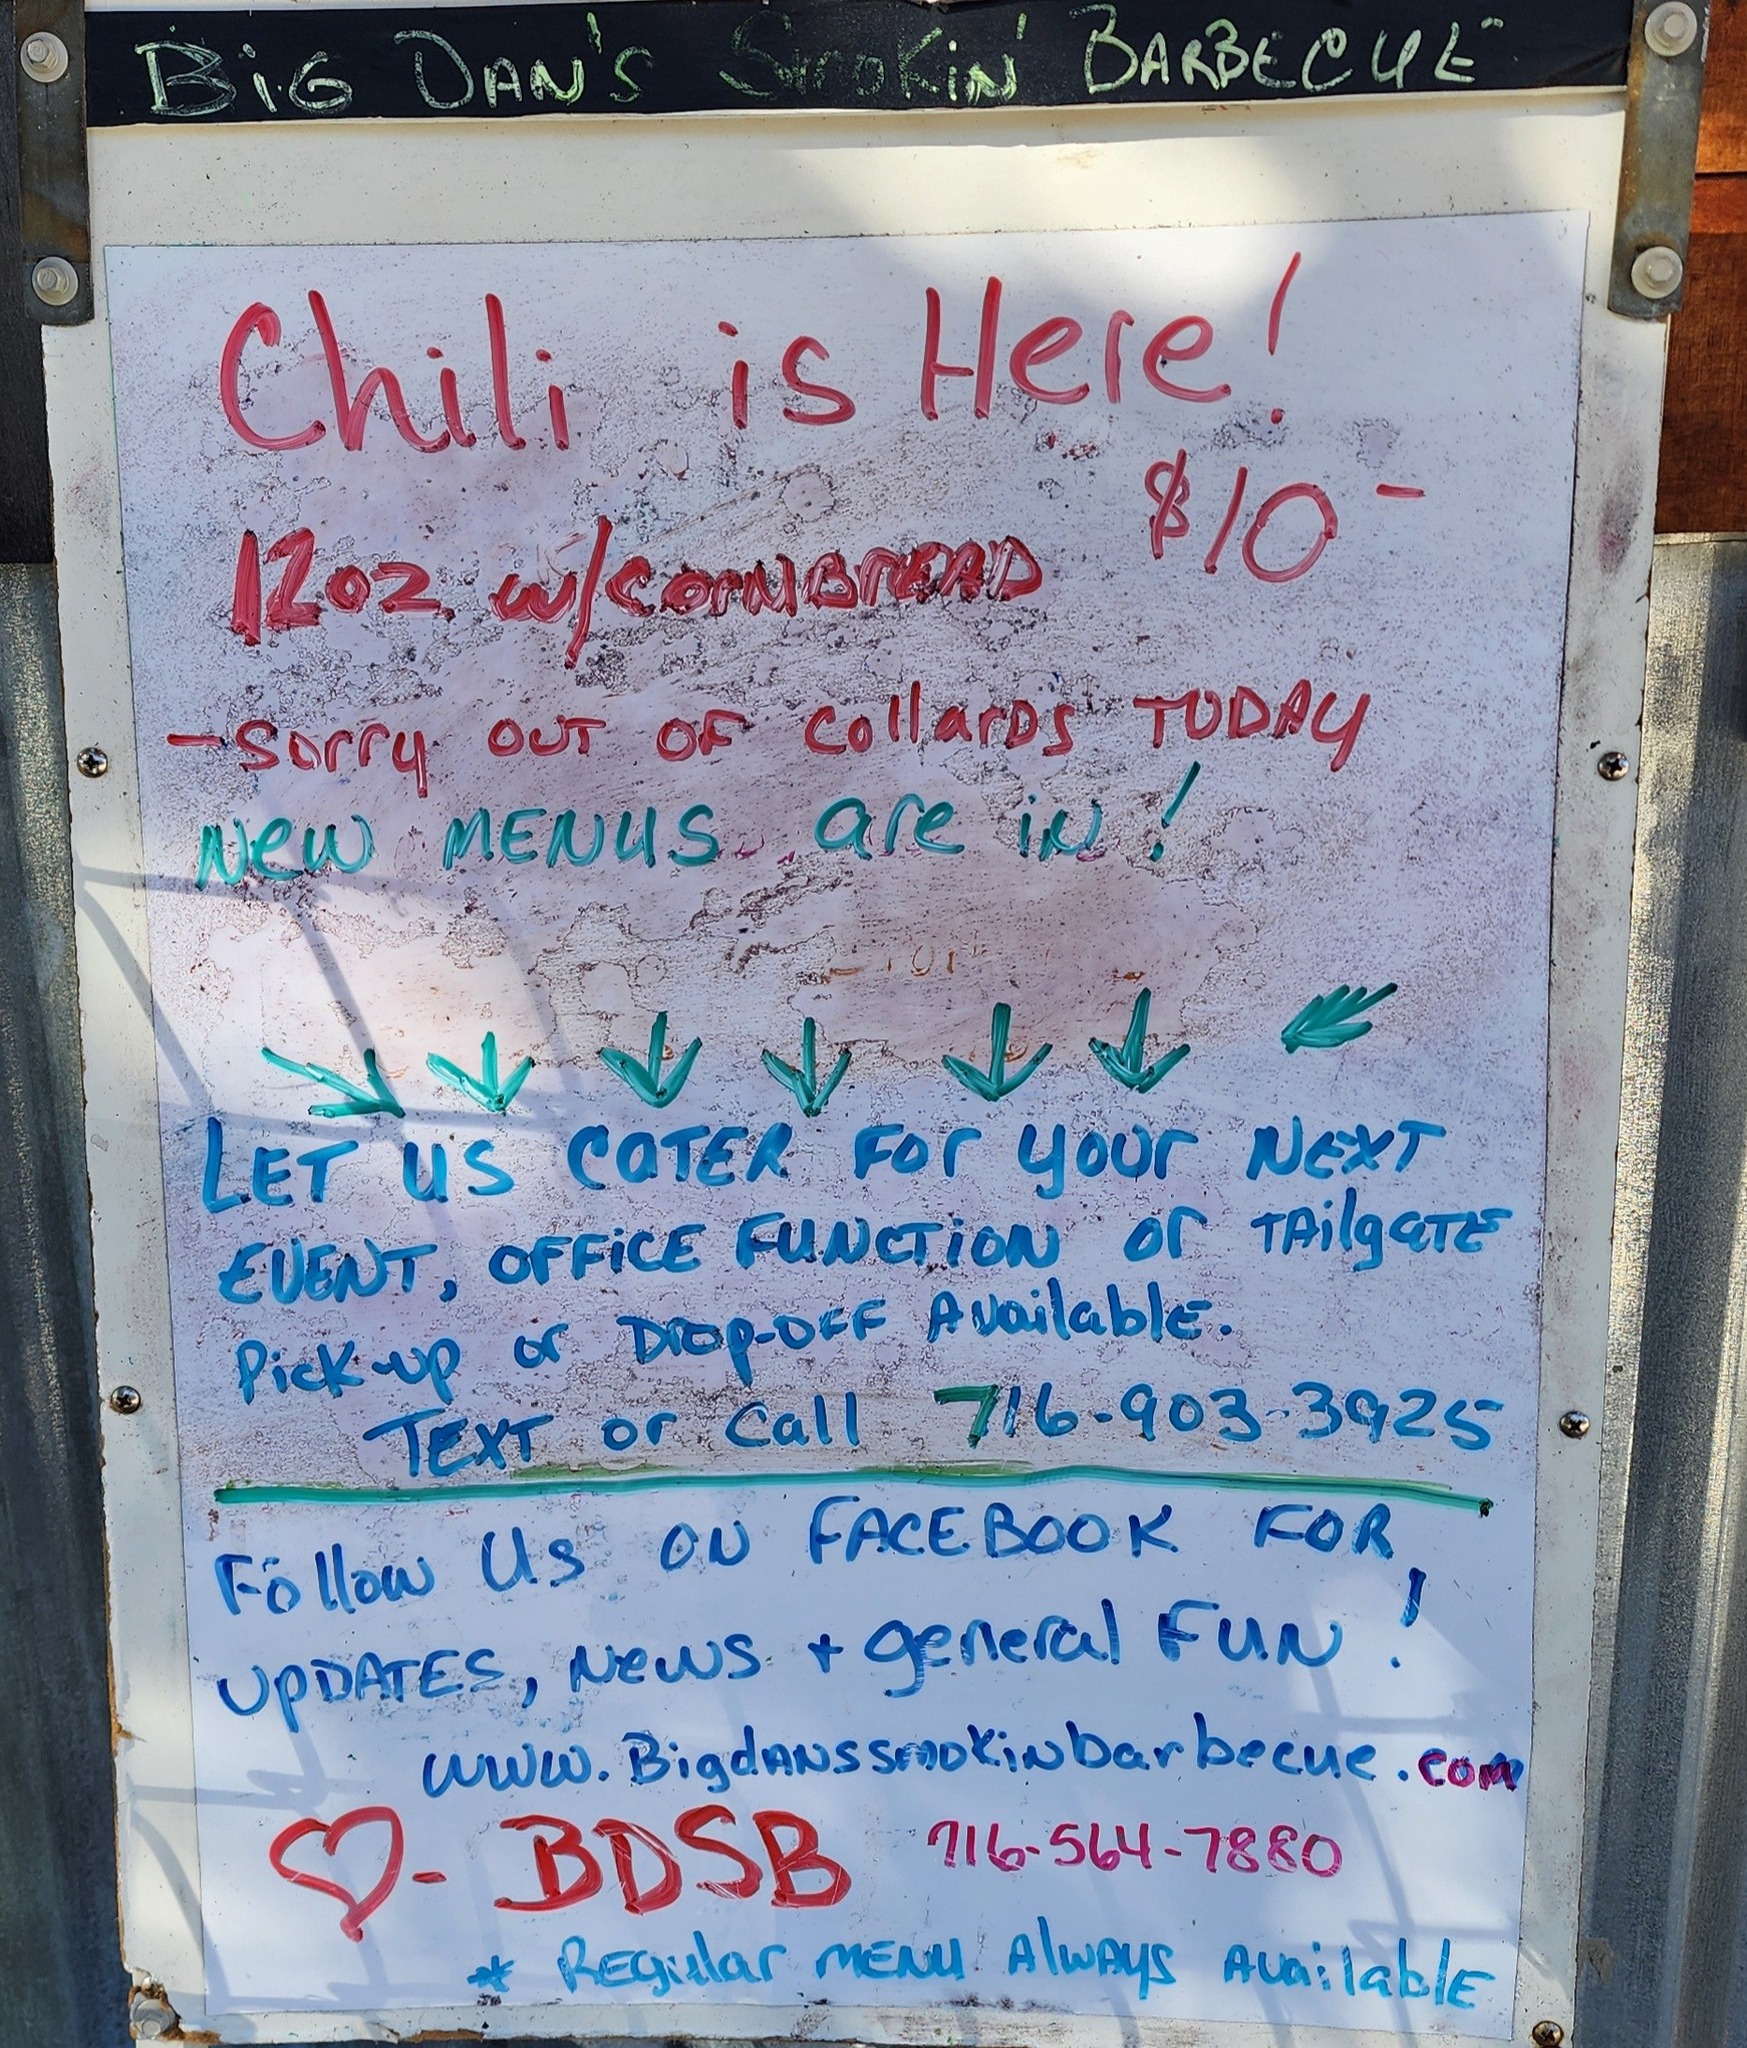 BiG DAN'S SMOKiN' BARBECUE
Chili is Here!
$10-
12oz w/CORNBREAD
- Sorry OUT OF Collards TODAY
New MENUS are in!
LET US CATER For your NEXT
EVENT, OFFICE FUNCTION or TAilgATE
Pick-up or Drop-OFF Available.
TEXT or Call 716-903-3925
Follow Us ON FACEBOOK FOR
UPDATES, News + general FUN!
www.BigdANssmokinbarbecue.com
♡- BDSB 716-564-7880
* REgular MENU Always Available